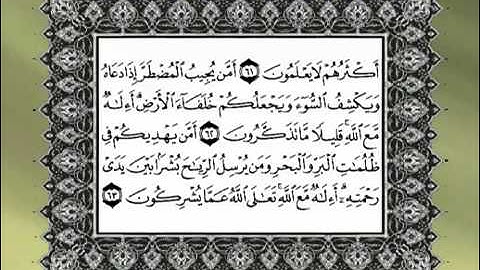 أَكْثَرُهُمْ لَا يَعْلَمُونَ ٦١ أَمَّن يُجِيبُ الْمُضْطَرَّ إِذَا دَعَاهُ
وَيَكْشِفُ السُّوءَ وَيَجْعَلُكُمْ خُلَفَاءَ الْأَرْضِ أَءِلَٰهٌ
مَّعَ اللَّهِ قَلِيلًا مَّا تَذَكَّرُونَ ٦٢ أَمَّن يَهْدِيكُمْ فِي
ظُلُمَاتِ الْبَرِّ وَالْبَحْرِ وَمَن يُرْسِلُ الرِّيَاحَ بُشْرًا بَيْنَ يَدَيْ
رَحْمَتِهِ أَءِلَٰهٌ مَّعَ اللَّهِ تَعَالَى اللَّهُ عَمَّا يُشْرِكُونَ ٦٣